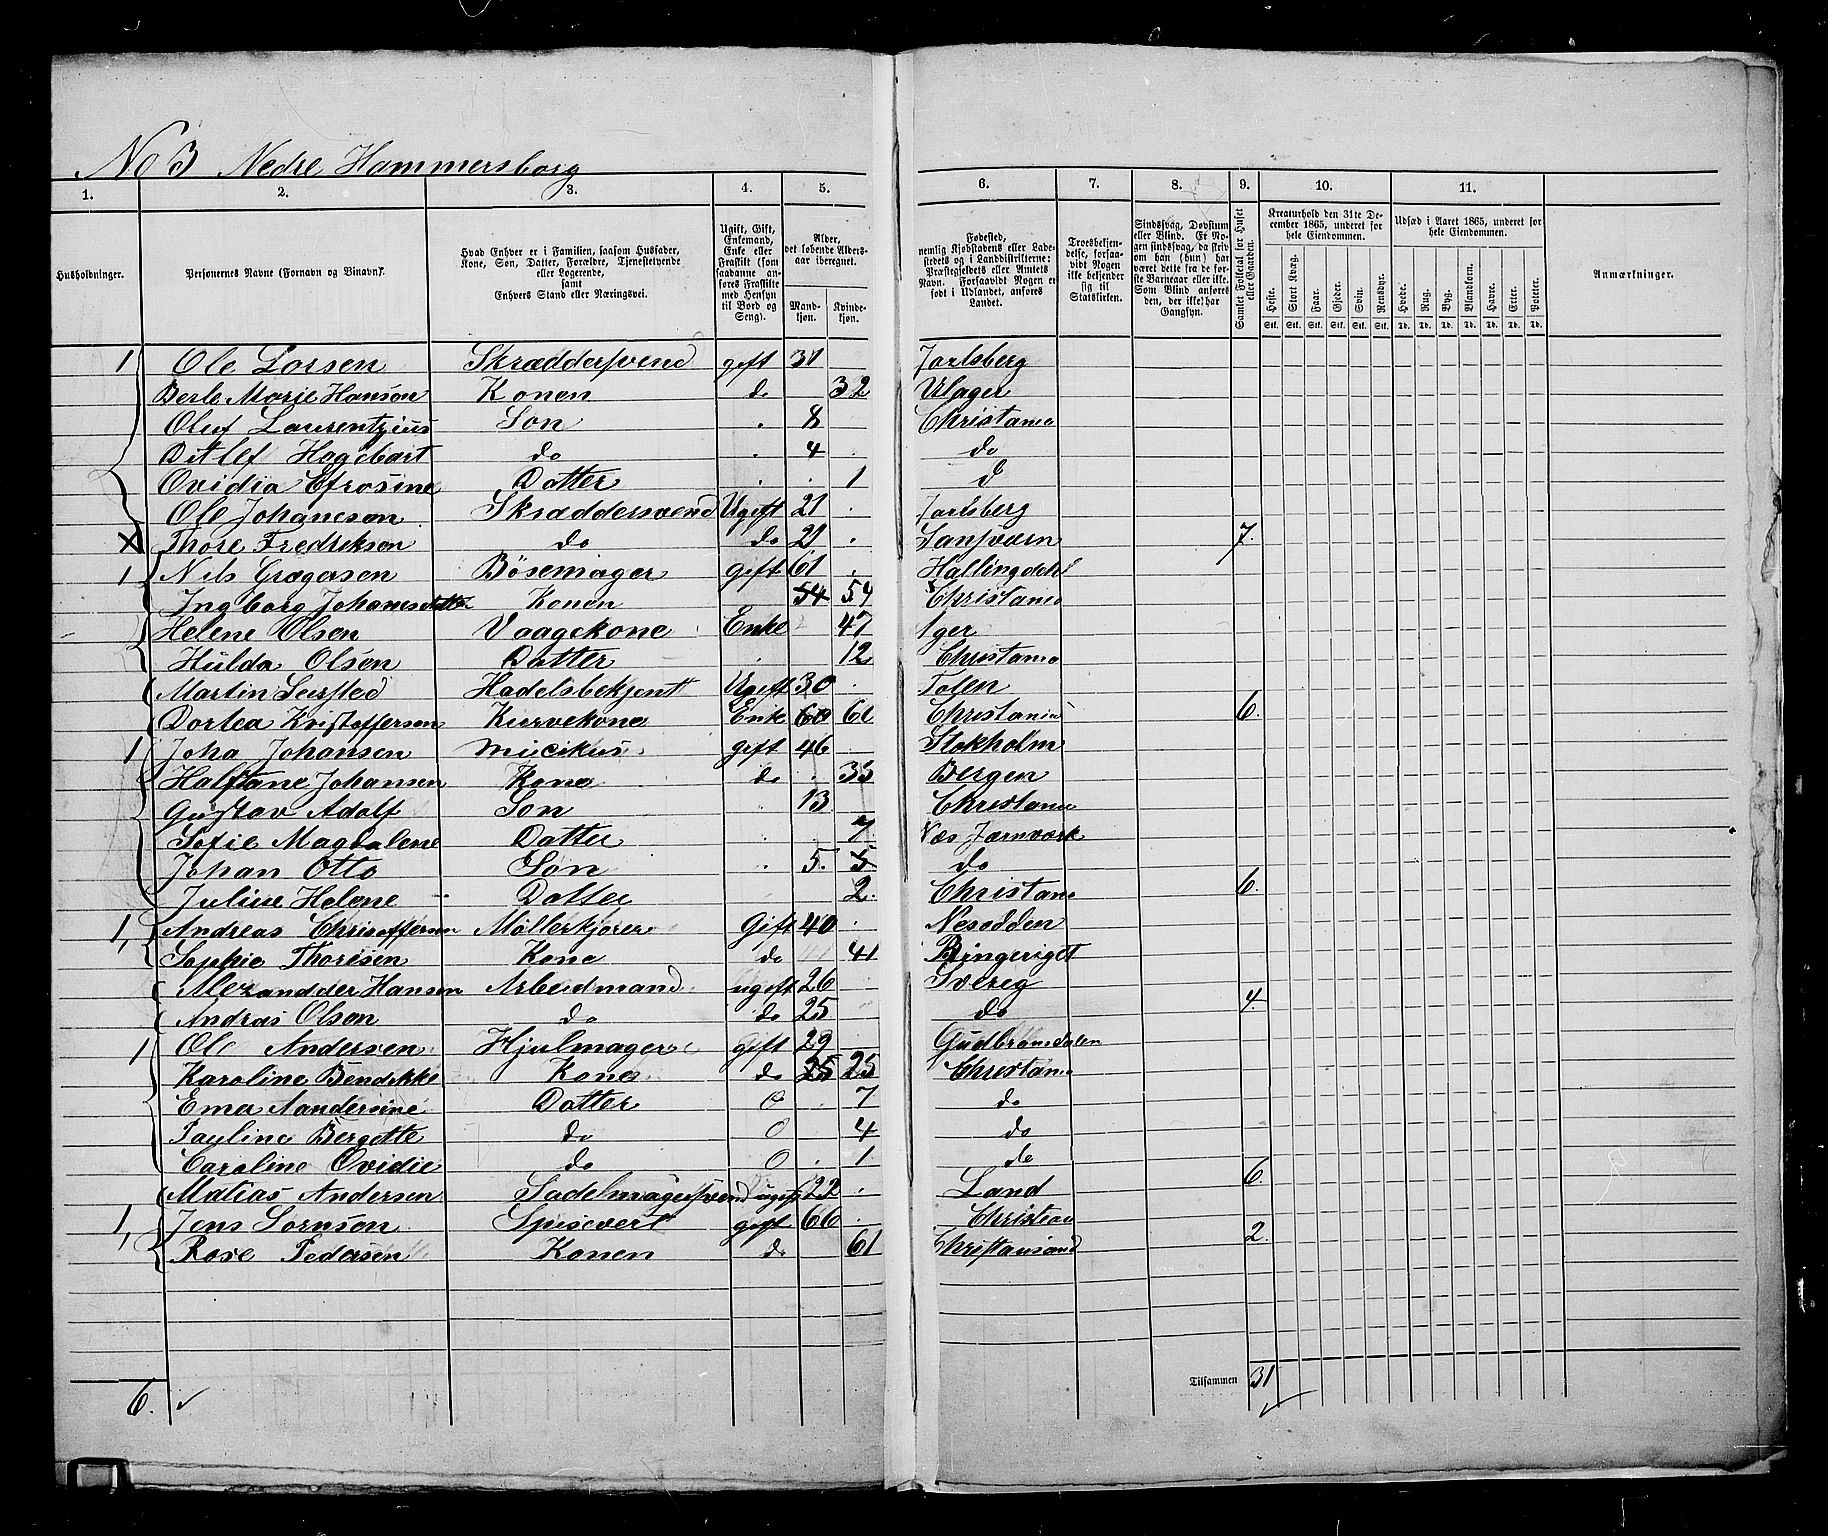 No 3 Nedre Hammersborg
1. 2. 3. 4. 5. 6. 7. 8. 9. 10. 11.
Husholdninger.
Personernes Navne (Fornavn og Tilnavn).
Hvad Enhver er i Familien, saasom Husfader, Kone, Søn, Datter, Forældre, Tjenestetyende eller Logerende, samt Enhvers Stand eller Næringsvei.
Ugift, Gift, Enkemand, Enke eller Fraskilt (som saadanne anføres Fraskilte med Hensyn til Bord og Seng).
Alder, det løbende Alders-aar iberegnet.
Mand-kjøn. Kvinde-kjøn.
Fødested, nemlig Kjøbstadens eller Ladestedets og i Landdistrikterne: Præstegjeldets eller Amtets Navn. Forsaavidt Nogen er født i Udlandet, anføres Landet.
Troesbekjendelse, forsaavidt Nogen ikke bekjender sig til Statskirken.
Sindssvag, Døvstum eller Blind. Er Nogen sindssvag, da skriv om han (hun) har været dette fra de første Barneaar eller ikke. Som Blind anføres den, der ikke har Gangsyn.
Samlet Folketal for Huset eller Gaarden.
Kreaturhold den 31te December 1865, underet for hele Eiendommen.
Heste. Stort Kvæg. Faar. Gjeder. Svin. Rensdyr.
Stk. Stk. Stk. Stk. Stk. Stk.
Udsæd i Aaret 1865, underet for hele Eiendommen.
Hvede. Rug. Byg. Blandkorn. Havre. Erter. Poteter.
Td. Td. Td. Td. Td. Td. Td.
Anmærkninger.
1 Ole Larsen Skræddersvend gift 31 Jarlsberg
Berte Marie Hanson Konen do 32 Ulager
Oluf Laurentzius Son 8 Christania
Ditlef Hagebart do 4 do
Ovidia Efrosine Datter 1 d
Ole Johaneson Skræddersvend Ugift 21 Jarlsberg
X Thore Fredrikson do do 21 7.
1 Nils Gregersen Bösemager gift 61 Hallingdahl
Ingborg Johanesdatter Konen 54 54 Christania
Helene Olsen Vaagekone Enke 47 Ager
Hulda Olsen Datter 12 Christania
Martin Seirsted Hadelsbekjent Ugift 30 Toten
Dortea Kristoffersen Kurvekone Enke 60 61 Christania 6.
1 Joha Johansen Mucikus gift 46 Stokholm
Halftane Johansen Kone do 35 Bergen
Gustav Adolf Son 13 Christania
Sofie Magdalene Datter 7 Næs Jærnværk
Johan Otto Søn 5. 5 do
Juline Helene Datter 2. Christania 6.
1, Andreas Christoffersen Møllerkjører Gift 40 Nesodden
Sophie Thorisen Kone do 41 Ringeriget
Alexandder Hansen Arbeidmand ugift 26 Sverig
Andras Olson do do 25 do 4.
1 Ole Andersen Hjulmager gift 29 Gudbransdalen
Karoline Bendikke Kone do 25 25 Christania
Ema Aandersine Datter O 7 do
Pauline Bergette do O 4 do
Caroline Ovidie do O 1 do
Matias Andersen Sadelmagersvend ugift 22 Land 6.
1, Jens Sornson Spisevert gift 66 Christian
Rose Pedersen Konen do 61 Christansand 2.
6. Tilsammen 31